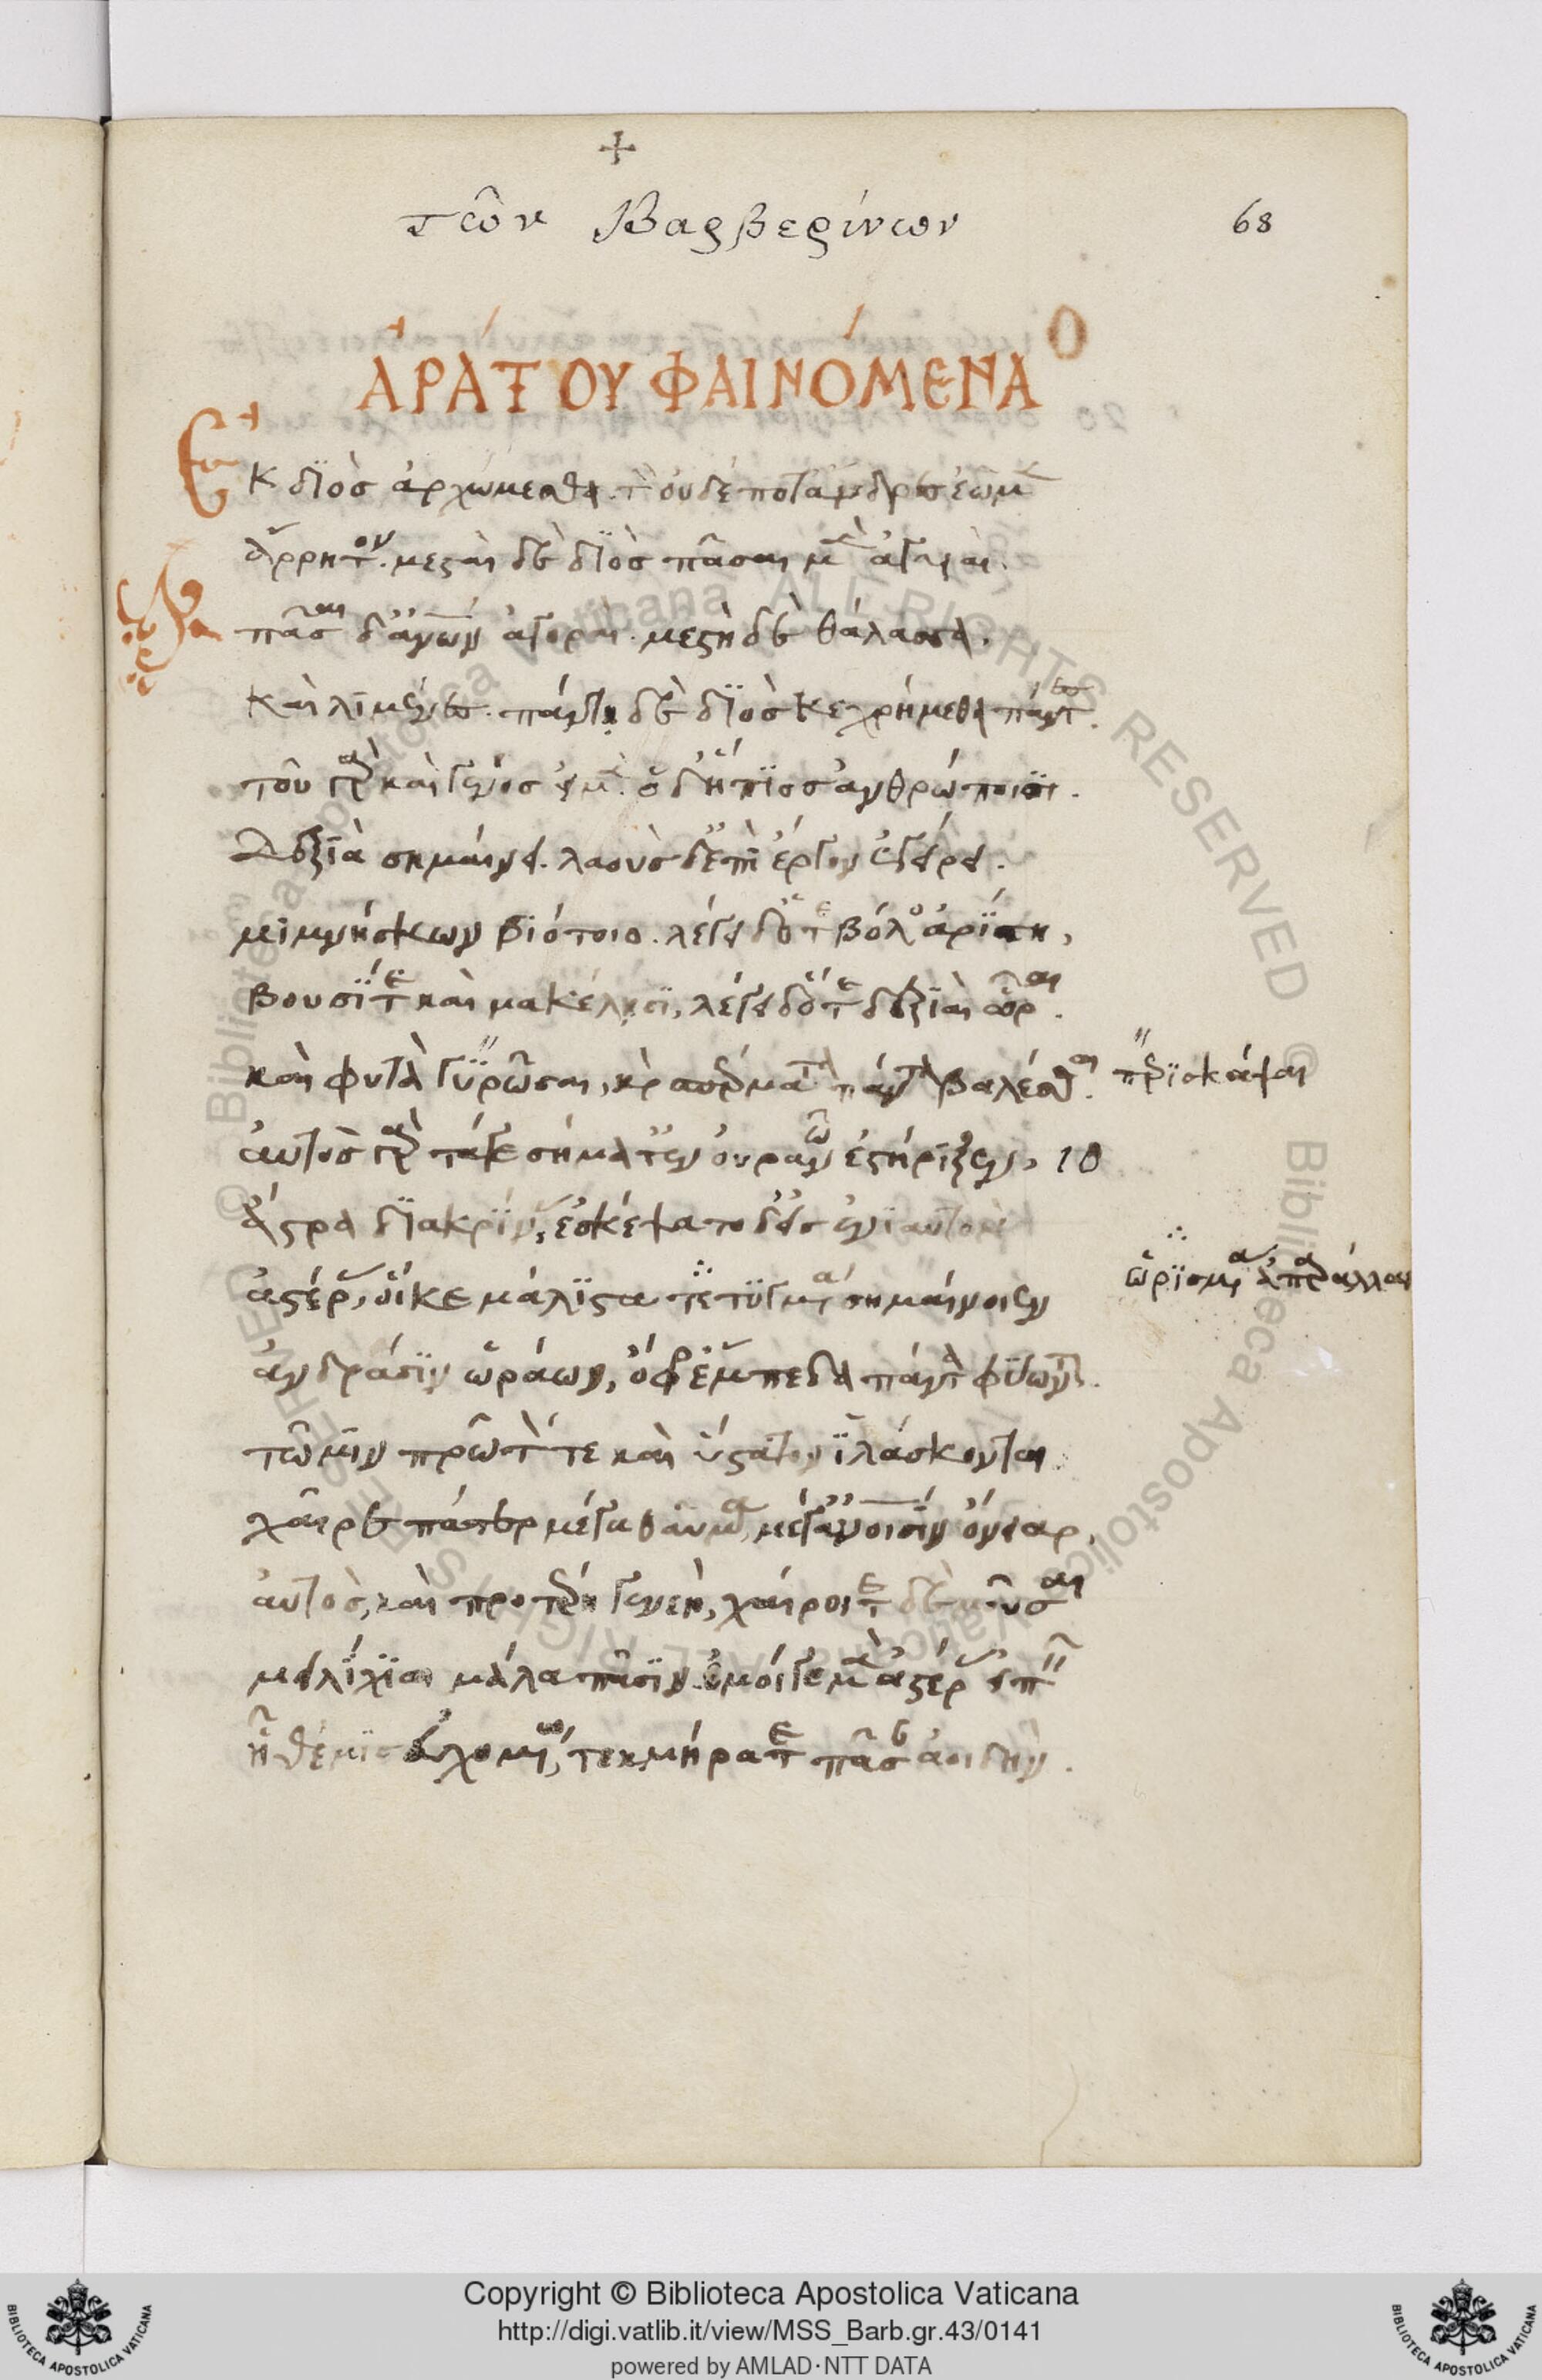 +
τῶν Βαρβερίνων 68
ἈΡΆΤΟΥ ΦΑΙΝΌΜΕΝΑ
Ἐκ διὸς ἀρχώμεσθα. τὸν οὐδέποτ' ἄνδρες ἐῶμεν
ἄρρητον. μεσταὶ δὲ διὸς πᾶσαι μὲν ἀγυιαὶ.
πᾶσαι δ' ἀν̅ω̅ν̅ ἀγοραὶ. μεστὴ δὲ θάλασσα,
καὶ λιμένες. πάντη δὲ διὸς κεχρήμεθα πάντες.
τοῦ γὰρ καὶ γένος ἐσμὲν. ὁ δ' ἤπιος ἀνθρώποισι.
Δεξιὰ σημαίνει. λαοὺς δ' ἐπὶ ἔργον ἐγείρει.
μιμνήσκων βιότοιο. λέγει δ' ὅτε βόλος ἀρίστη,
βουσί τε καὶ μακέλησι, λέγει δ' ὅτε δεξιαὶ ὧραι.
καὶ φυτὰ γυρῶσαι, καὶ σπέρματα πάντα βαλέσθαι. περισκάψαι
αὐτὸς γὰρ τάγε σήματ' ἐν οὐρανῶ ἐστήριξεν, 10
ἄστρα διακρίνας, ἐσκέψατο δ' εἰς ἐνιαυτὸν
ἀστέρας, οἵ κε μάλιστα τετυγμένα σημαίνοιεν ὡρισμένα ἀπαράλλακτα
ἀνδράσιν ὡράων, ὄφρ' ἔμπεδα πάντα φύωνται.
τῶ μιν πρῶτόν τε καὶ ὕστατον ἱλάσκονται
χαῖρε πάτερ μέγα θαῦμα, μέγ' ἀν̅ο̅ι̅σιν ὄνειαρ,
αὐτὸς, καὶ προτέρη γενεὴ, χαίροιτε δὲ μοῦσαι
μειλίχιαι μάλα πᾶσιν. ἐμοί γε μὲν ἀστέρας εἰπεῖν
ἧ θέμις εὐχομένω, τεκμήρατε πᾶσαν ἀοιδήν.
Copyright © Biblioteca Apostolica Vaticana
http://digi.vatlib.it/view/MSS_Barb.gr.43/0141
powered by AMLAD·NTT DATA